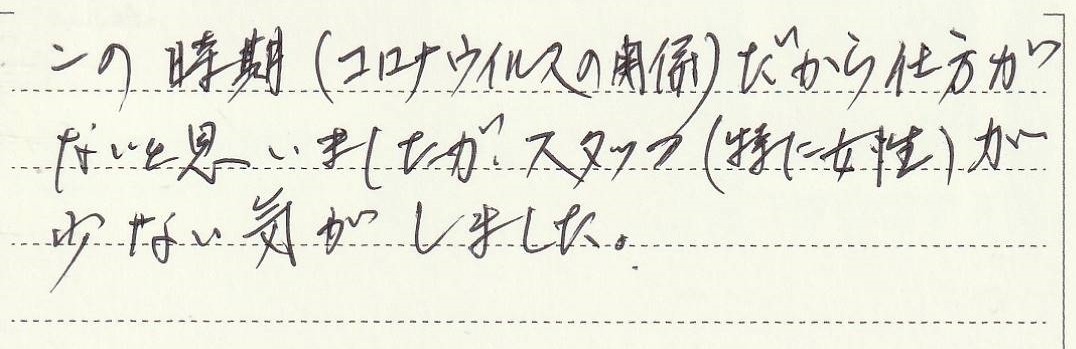 この時期(コロナウイルスの関係)だから仕方が
ないと思いましたが、スタッフ(特に女性)が
少ない気がしました。